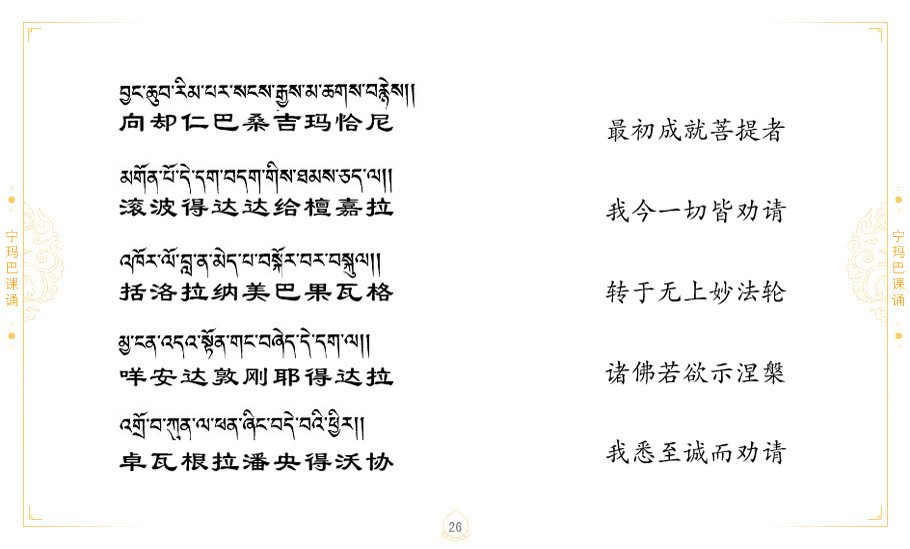 བྱང་ཆུབ་རིམ་པར་སངས་རྒྱས་མ་ཆགས་བརྙེས།།
向却仁巴桑吉玛恰尼
最初成就菩提者
མགོན་པོ་དེ་དག་བདག་གིས་ཐམས་ཅད་ལ།།
滚波得达达给檀嘉拉
我今一切皆劝请
འཁོར་ལོ་བླ་ན་མེད་པ་བསྐོར་བར་བསྐུལ།།
括洛拉纳美巴果瓦格
转于无上妙法轮
མྱ་ངན་འདའ་སྟོན་གང་བཞེད་དེ་དག་ལ།།
咩安达敦刚耶得达拉
诸佛若欲示涅槃
འགྲོ་བ་ཀུན་ལ་ཕན་ཞིང་བདེ་བའི་ཕྱིར།།
卓瓦根拉潘央得沃协
我悉至诚而劝请
宁玛巴课诵
宁玛巴课诵
26